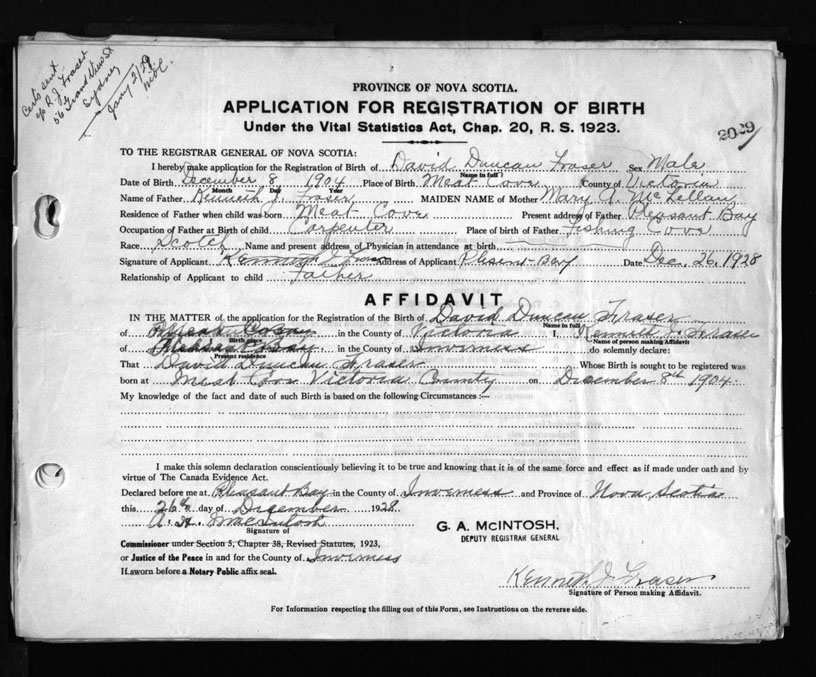 Certs sent
c/o R. J. Fraser
56 Grand View St
Sydney
Jany 2/29
PROVINCE OF NOVA SCOTIA.
APPLICATION FOR REGISTRATION OF BIRTH
Under the Vital Statistics Act, Chap. 20, R. S. 1923.
TO THE REGISTRAR GENERAL OF NOVA SCOTIA:
I hereby make application for the Registration of Birth of David Duncan Fraser Sex Male
Name in full
Date of Birth December 8 1904 Place of Birth Meat Cove County of Victoria
Month Day Year
Name of Father Kenneth J. Fraser MAIDEN NAME of Mother Mary A. McLellan
Residence of Father when child was born Meat Cove Present address of Father Pleasant Bay
Occupation of Father at Birth of child Carpenter Place of birth of Father Fishing Cove
Race Scotch Name and present address of Physician in attendance at birth
Signature of Applicant Kenneth J Fraser Address of Applicant Plesent Bay Date Dec. 26, 1928
Relationship of Applicant to child Father
AFFIDAVIT
IN THE MATTER of the application for the Registration of the Birth of David Duncan Fraser
Name in full
of in the County of Victoria I, Kenneth J. Fraser
Birth place Name of person making Affidavit
of Pleasant Bay in the County of Inverness do solemnly declare:
Present residence
That David Duncan Fraser Whose Birth is sought to be registered was
born at Meat Cove Victoria County on December 8th 1904.
My knowledge of the fact and date of such Birth is based on the following Circumstances :—
I make this solemn declaration conscientiously believing it to be true and knowing that it is of the same force and effect as if made under oath and by
virtue of The Canada Evidence Act.
Declared before me at Pleasant Bay in the County of Inverness and Province of Nova Scotia
this 26th day of December 1928.
A. H. MacIntosh
Signature of
G. A. McINTOSH,
DEPUTY REGISTRAR GENERAL
Commissioner under Section 5, Chapter 38, Revised Statutes, 1923,
or Justice of the Peace in and for the County of Inverness
If sworn before a Notary Public affix seal.
Kenneth J Fraser
Signature of Person making Affidavit.
For Information respecting the filling out of this Form, see Instructions on the reverse side.